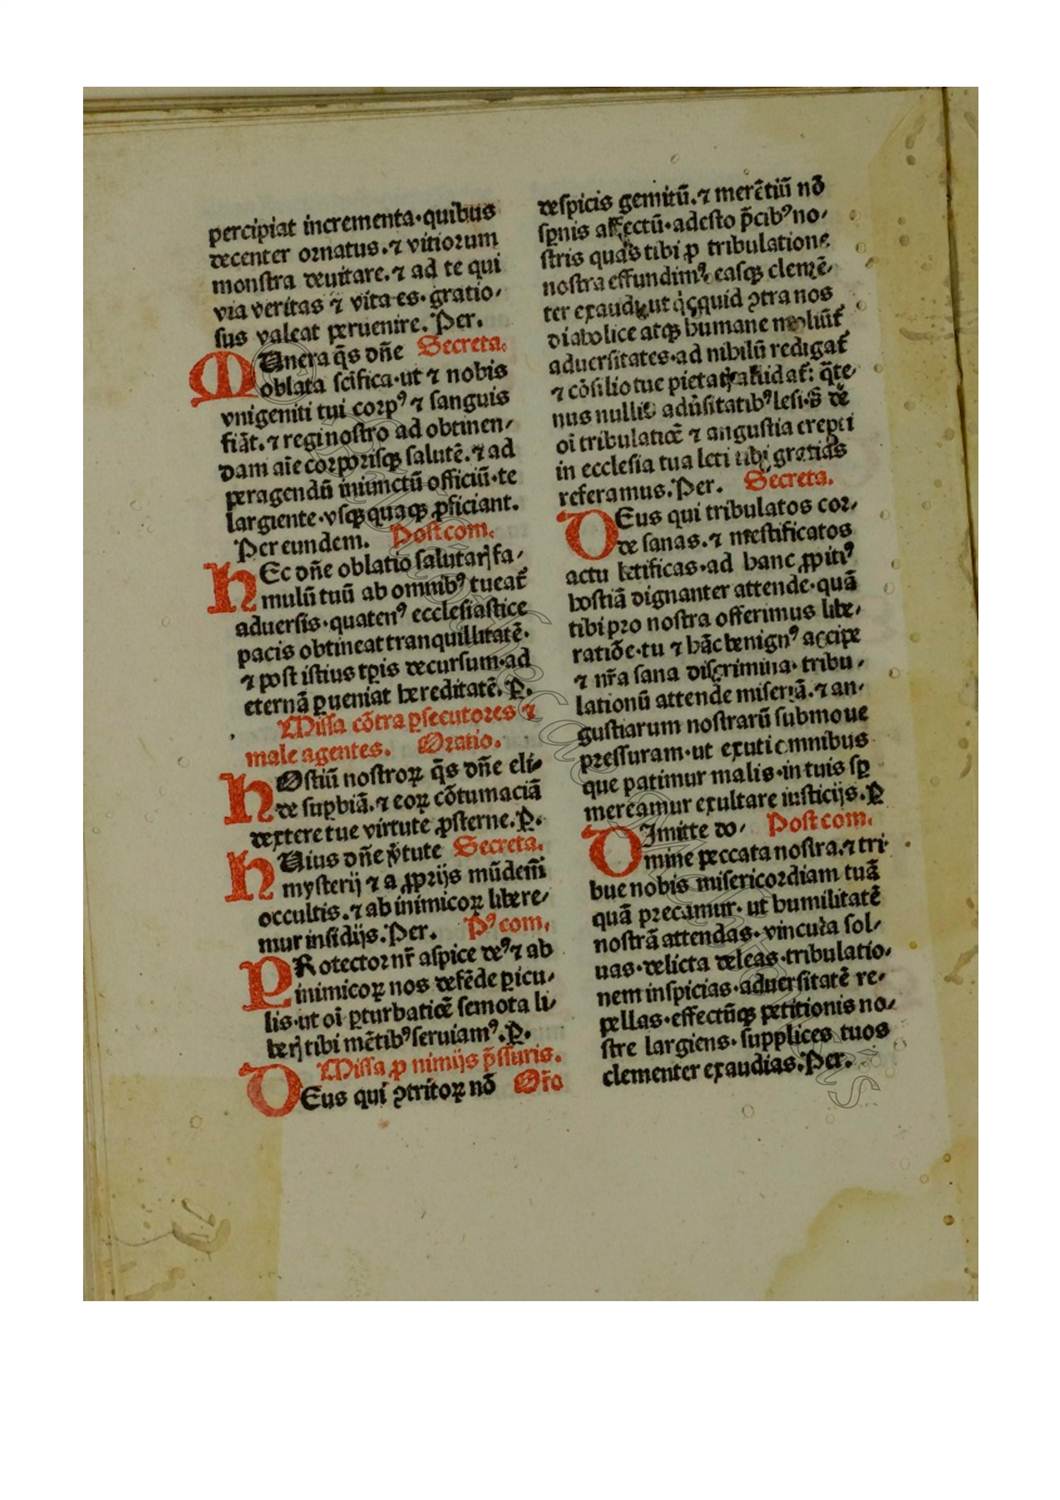 percipiat incrementa·quibus
decenter ornatus.⁊ vitiorum
monstra deuitare.⁊ ad te qui
via veritas ⁊ vita es·gratio-
sus valeat peruenire. Per.
MUnera q̄s dn̄e Secreta.
oblata scīfica·ut ⁊ nobis
vnigeniti tui corpꝰ ⁊ sanguis
fiāt.⁊ regi nostro ad obtinen-
dam aīe corporisqꝫ salutē.⁊ ad
peragendū iniunctū officiū·te
largiente·vsqꝫquaqꝫ ꝓficiant.
Per eundem. Postcom.
HEc dn̄e oblatio salutarꝭ fa-
mulū tuū ab omnibꝰ tueat̄
aduersis·quatenꝰ ecclesiastice
pacis obtineat tranquillitatē·
⁊ post istius tꝑis decursum·ad
eternā ꝑueniat hereditatē.P.
Missa cōtra ꝑsecutores ⁊
male agentes. Oratio.
HOstiū nostroꝝ q̄s dn̄e eli-
de suꝑbiā.⁊ eoꝝ cōtumaciā
dextere tue virtute ꝓsterne.P.
HUius dn̄e v̄tute Secreta.
mysterij ⁊ a ꝓprijs mūdem̄
occultis.⁊ ab inimicoꝝ libere-
mur insidijs.Per. Pꝰcom.
PRotector nr̄ aspice deꝰ ⁊ ab
inimicoꝝ nos defēde ꝑicu-
lis·ut oī ꝑturbatiōe semota li-
berꝭ tibi mētibꝰ seruiamꝰ.P.
Missa ꝓ nimijs p̄ssuris.
DEus qui ꝯtritoꝝ nō Or̄o
despicis gemitū.⁊ merētiū nō
sꝑnis affectū·adesto p̄cibꝰ no-
stris quas tibi ꝓ tribulatione
nostra effundimꝰ. easqꝫ clemē-
ter exaudi·ut qͥcquid ꝯtra nos
diabolice atqꝫ humane moliūt̄
aduersitates·ad nihilū redigat̄
⁊ cōsilio tue pietatis allidat̄: q̄te-
nus nullis adūsitatibꝰ lesi·s̄ de
oī tribulatiōe ⁊ angustia erepti
in ecclesia tua leti tibi gratias
referamus.Per. Secreta.
DEus qui tribulatos cor-
de sanas.⁊ mestificatos
actu letificas·ad hanc ꝓpitiꝰ
hostiā dignanter attende·quā
tibi pro nostra offerimus libe-
ratiōe·tu ⁊ hāc benignꝰ accipe
⁊ nr̄a sana discrimina· tribu-
lationū attende miseriā.⁊ an-
gustiarum nostrarū submoue
pressuram·ut exuti omnibus
que patimur malis·in tuis sꝑ
mereamur exultare iusticijs.P
DImitte do- Post com.
mine peccata nostra.⁊ tri-
bue nobis misericordiam tuā
quā precamur· ut humilitatē
nostrā attendas·vincula sol-
uas·delicta deleas·tribulatio-
nem inspicias·aduersitatē re-
pellas·effectūqꝫ petitionis no-
stre largiens· supplices tuos
clementer exaudias.Per.